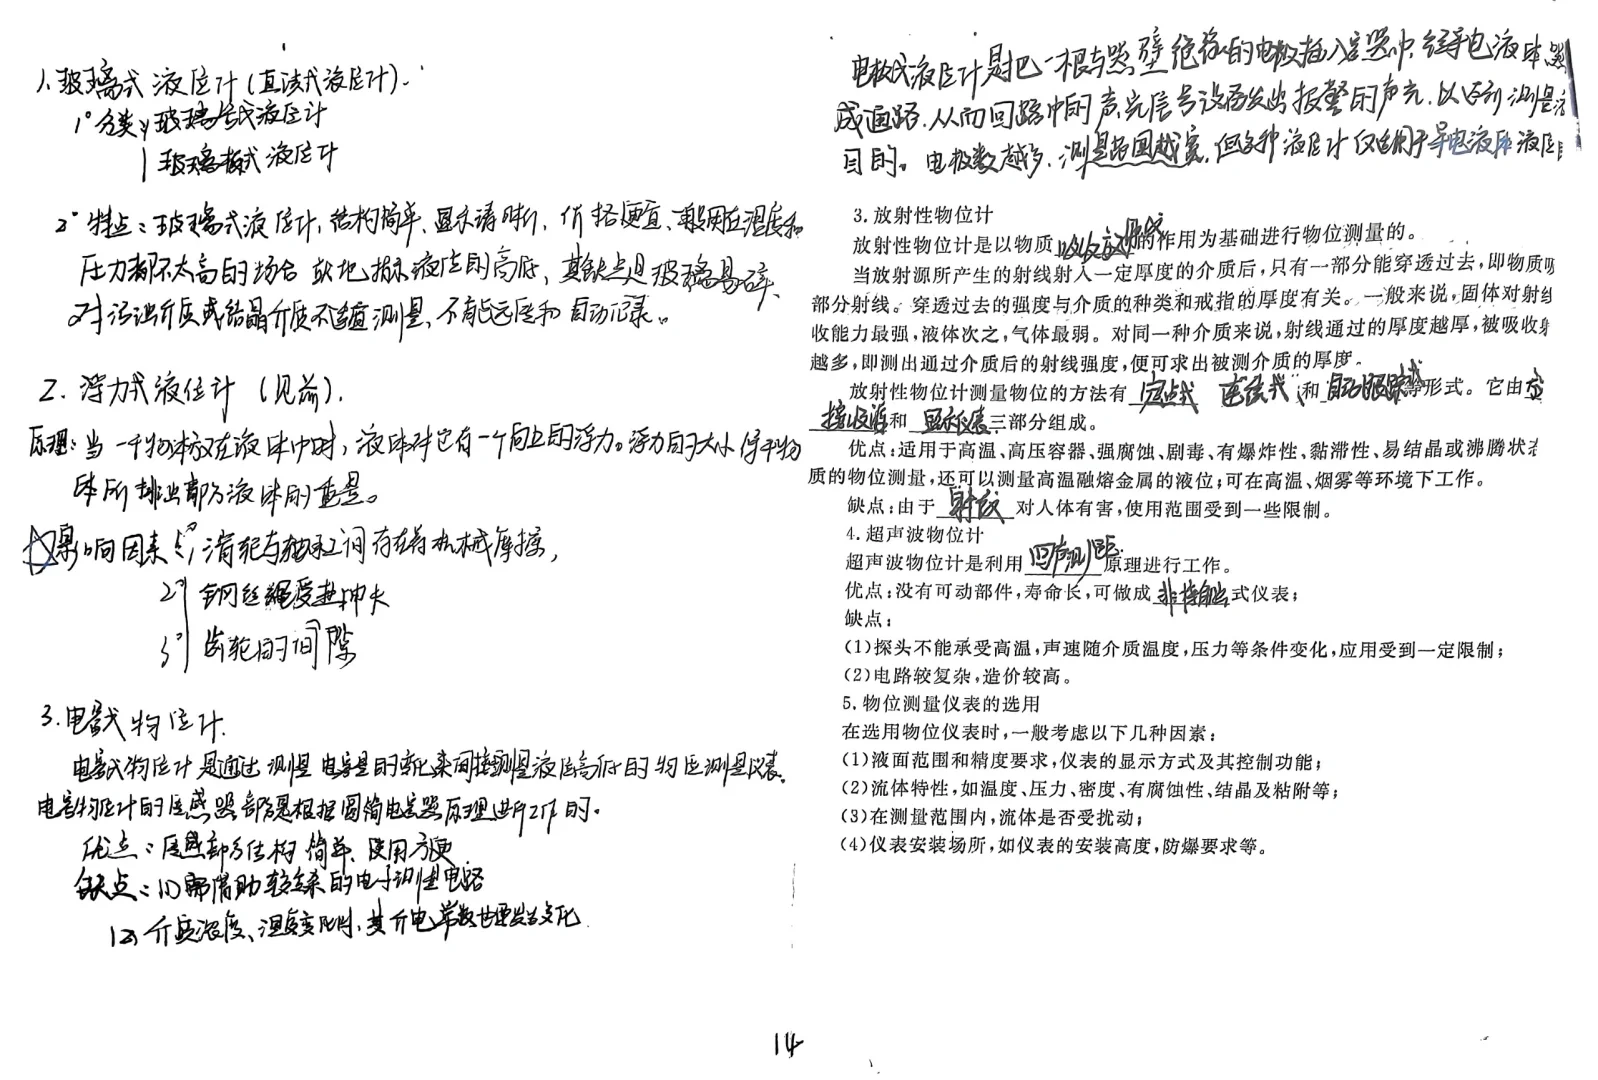 1、玻璃式液位计(直读式液位计).
1°分类 玻璃管式液位计
玻璃板式液位计
2°特点：玻璃式液位计,结构简单、显示清晰、价格便宜、一般用在温度和
压力都不太高的场合就地指示液位的高低,其缺点是玻璃易碎、
对污浊介质或结晶介质不适宜测量、不能远传和自动记录。
2.浮力式液位计(见前).
原理:当一个物体放在液体中时,液体对它有一个向上的浮力。浮力的大小等于物
体所排出部分液体的重量。
影响因素 1°滑轮与轴承间存在着机械摩擦,
2°钢丝绳受热伸长
3°齿轮的间隙
3.电容式物位计.
电容式物位计是通过测量电容量的变化来间接测量液位高低的物位测量仪表.
电容物位计的传感器部分是根据圆筒电容器原理进行工作的.
优点：传感部分结构简单、使用方便
缺点：(1)需借助较复杂的电子测量电路
(2)介质浓度、温度变化时,其介电常数也要发生变化
电极式液位计是把一根与器壁绝缘的电极插入容器中,经导电液体
成通路.从而回路中的声光信号设备发出报警的声光.以达到测量
目的。电极数越多,测量范围越宽.但这种液位计仅适用于导电液体液位
3.放射性物位计
放射性物位计是以物质吸收射线的作用为基础进行物位测量的。
当放射源所产生的射线射入一定厚度的介质后,只有一部分能穿透过去,即物质吸
部分射线。穿透过去的强度与介质的种类和戒指的厚度有关。一般来说,固体对射线
收能力最强,液体次之,气体最弱。对同一种介质来说,射线通过的厚度越厚,被吸收
越多,即测出通过介质后的射线强度,便可求出被测介质的厚度。
放射性物位计测量物位的方法有 定点式 连续式、和 自动跟踪式等形式。它由
接收器和 显示仪表三部分组成。
优点:适用于高温、高压容器、强腐蚀、剧毒、有爆炸性、黏滞性、易结晶或沸腾状态
质的物位测量,还可以测量高温融熔金属的液位;可在高温、烟雾等环境下工作。
缺点:由于 射线 对人体有害,使用范围受到一些限制。
4.超声波物位计
超声波物位计是利用 回声测距 原理进行工作。
优点:没有可动部件,寿命长,可做成 非接触 式仪表;
缺点:
(1)探头不能承受高温,声速随介质温度,压力等条件变化,应用受到一定限制;
(2)电路较复杂,造价较高。
5.物位测量仪表的选用
在选用物位仪表时,一般考虑以下几种因素:
(1)液面范围和精度要求,仪表的显示方式及其控制功能;
(2)流体特性,如温度、压力、密度、有腐蚀性、结晶及粘附等;
(3)在测量范围内,流体是否受扰动;
(4)仪表安装场所,如仪表的安装高度,防爆要求等。
14